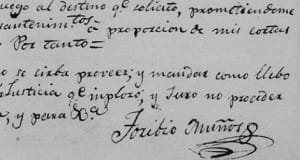 ruego al destino qe. solicito, prometiendome
mantenimtos. à proporcion de mis cortas
Por tanto =
se sirba proveer, y mandar como llebo
Justicia qe. imploro, y Juro no proceder
, y para Xa.
Toribio Muños